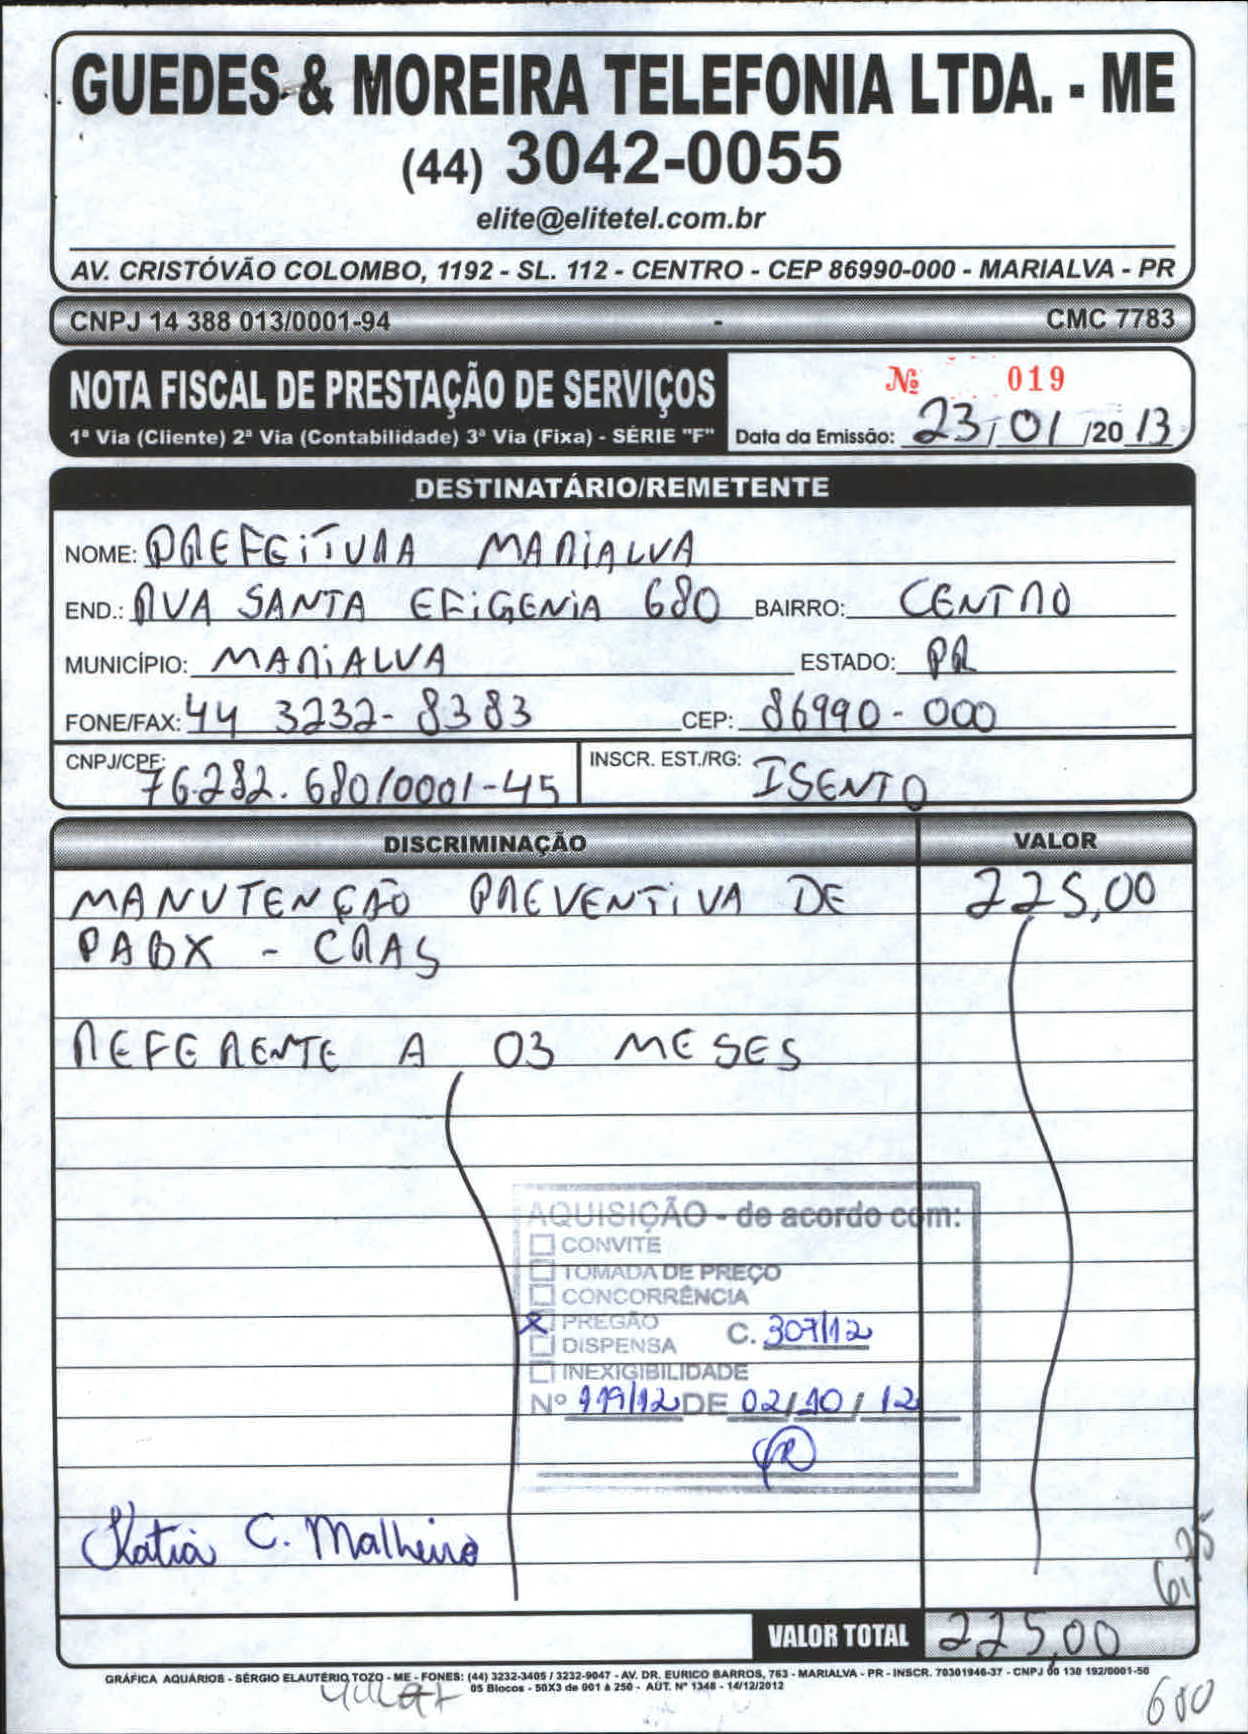 GUEDES & MOREIRA TELEFONIA LTDA. - ME
(44) 3042-0055
elite@elitetel.com.br
AV. CRISTÓVÃO COLOMBO, 1192 - SL. 112 - CENTRO - CEP 86990-000 - MARIALVA - PR
CNPJ 14 388 013/0001-94 - CMC 7783
NOTA FISCAL DE PRESTAÇÃO DE SERVIÇOS
1ª Via (Cliente) 2ª Via (Contabilidade) 3ª Via (Fixa) - SÉRIE "F"
Nº 019
Data da Emissão: 23/01/2013
DESTINATÁRIO/REMETENTE
NOME: PREFEITURA MARIALVA
END.: RUA SANTA EFIGENIA 680 BAIRRO: CENTRO
MUNICÍPIO: MARIALVA ESTADO: PR
FONE/FAX: 44 3232-8383 CEP: 86990-000
CNPJ/CPF: 76.282.680/0001-45 INSCR. EST./RG: ISENTO
DISCRIMINAÇÃO VALOR
MANUTENÇÃO PREVENTIVA DE 225,00
PABX - CRAS
REFERENTE A 03 MESES
AQUISIÇÃO - de acordo com:
CONVITE
TOMADA DE PREÇO
CONCORRÊNCIA
X PREGÃO
DISPENSA C. 307/12
INEXIGIBILIDADE
Nº 119/12 DE 02/10/12
Katia C. Malheiro
6,75
VALOR TOTAL 225,00
GRÁFICA AQUÁRIOS - SÉRGIO ELAUTÉRIO TOZO - ME - FONES: (44) 3232-3405 / 3232-9047 - AV. DR. EURICO BARROS, 763 - MARIALVA - PR - INSCR. 70301946-37 - CNPJ 00 130 192/0001-50
05 Blocos - 50X3 de 001 à 250 - AUT. Nº 1348 - 14/12/2012
680